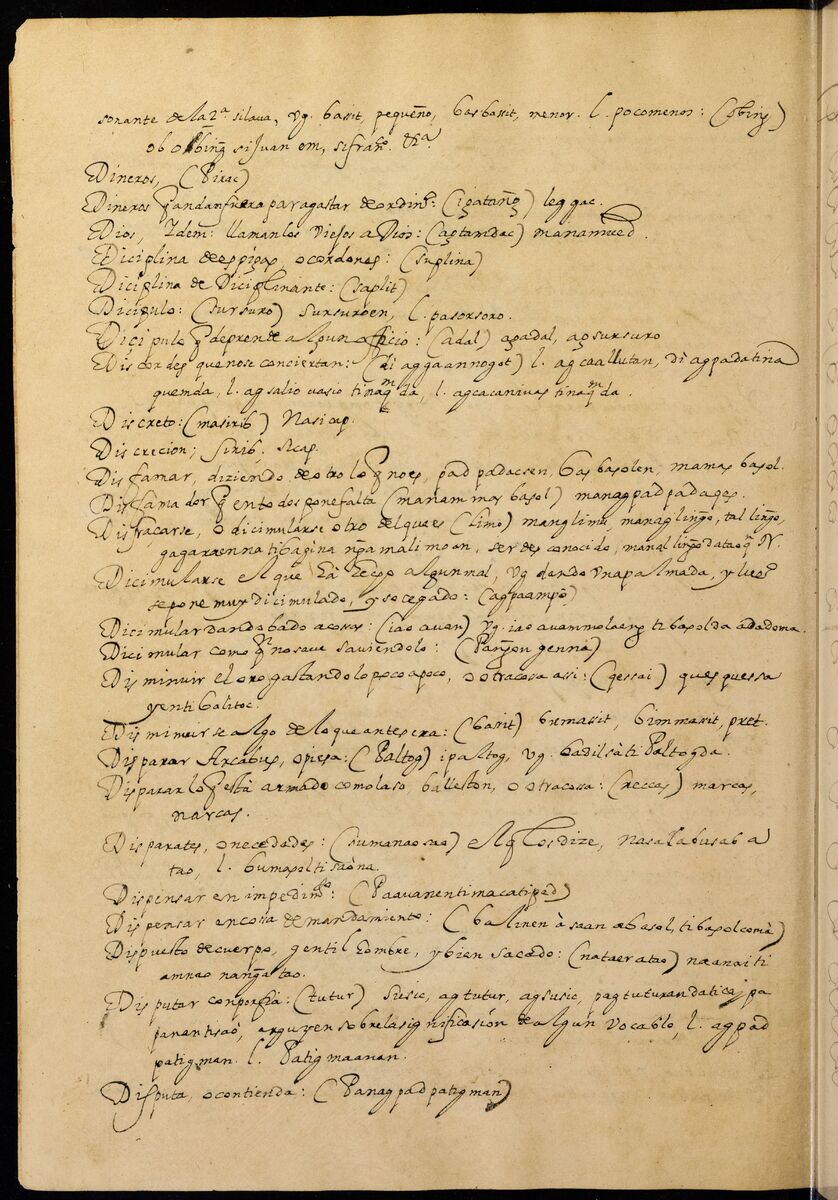 sonante de la 2ª silaua, vg. bassit, pequeño, bas bassit, menor. l. pocomenos: (obing)
ob obbing si Juan om, si fran.co &ª.
Dineros, (Pirac)
Dineros q̃ andan fuera para gastar de ordin.º: (ipatang) leggac.
Dios, Idem: llaman los viejos a Dios: (agtaridac) manamued.
Diciplina de espigas, o cordones: (suplina)
Diciplina de Diciplinante: (saplit)
Dicipulo: (sursuro) sursuroen, l. pasorsoro.
Dicipulo q̃ deprende algun officio: (adal) agadal, agsursuro
Discordes que no se conciertan: (di aggaannogot) l. agcaallutan, di agpada tina
quemda, l. agsalio uasio tinaqm da, l. agcacaniuas tinaqm da.
Discreto: (masirib) Nasicap.
Discrecion; sirib, sicap.
Disfamar, diziendo de otro lo q̃ no es, pad padacsen, bas basolen, mamas basol.
Disfamador q̃ en todos pone falta (manaminos basol) managpadpadaqes.
Disfraçarse, o dicimularse otro del que es (limo) manglimu, managlingo, tal lingo,
gagaraenna ti bagina nga malimoon, ser desconocido, manallingo dataoq̃ N.
Dicimularse el que ha hecho algun mal, vg dando vna palmada, y luego
se pone muy dicimulado, y socegado: (agpaampo)
Dicimular dando bado a cosas: (iao auan) vg. iao auammo laeng ti basol da adadoma.
Dicimular como q̃ no saue sauiendolo: (Pangongenna)
Disminuir el oro gastandolo poco apoco, o otra cosa asi: (qessai) ques quessa
yenti balitoc.
Disminuirse algo de lo que antes era: (bassit) bumassit, bimmassit, pret.
Disparar Arcabus, o piesa: (Paltog) ipaltog, vg. badilsà ti Paltogda.
Disparar lo q̃ està armado como laso, balleston, o otra cosa: (reccas) marcas,
narcas.
Disparates, o necedades: (sumanao nao) el q̃ los dize, nasallabusab a
tao, l. bumasol ti saona.
Dispensar en impedim.to: (Paauanenti macatiped)
Dispensar en cossa de mandamiento: (balinen à saan a basol, ti basol comà)
Dispuesto de cuerpo, gentil hombre, y bien sacado: (nataer a tao) naanai ti
amnao nanga tao.
Disputar con porfia: (tutur) susic, agtutur, agsusic, pagtuturandaticaipa
parantisaò, arguyen sobre la significasión de algun vocablo, l. agpad
patigman. l. Patigmaanan.
Disputa, o contienda: (Panagpadpatigman)